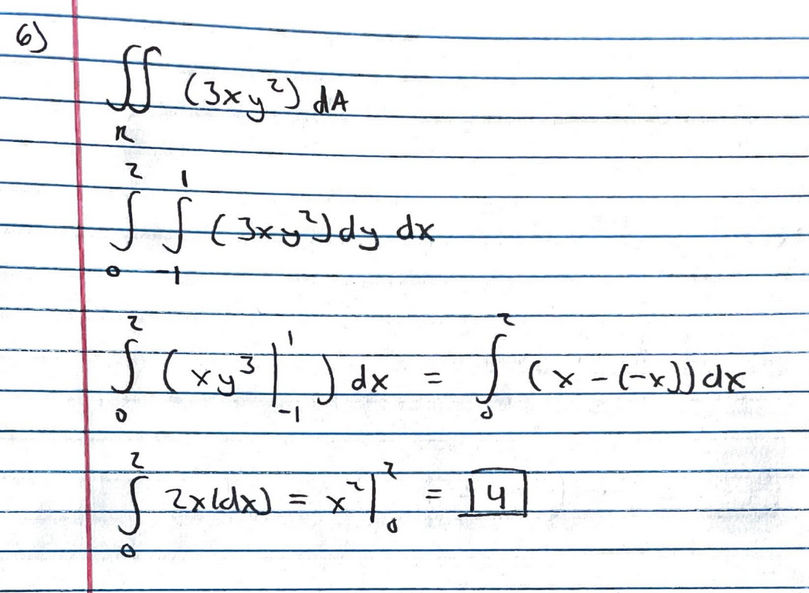 6)
∬_R (3xy²) dA
∫_0^2 ∫_{-1}^1 (3xy²) dy dx
∫_0^2 (xy³ |_{-1}^1) dx = ∫_0^2 (x - (-x)) dx
∫_0^2 2x(dx) = x² |_0^2 = 4